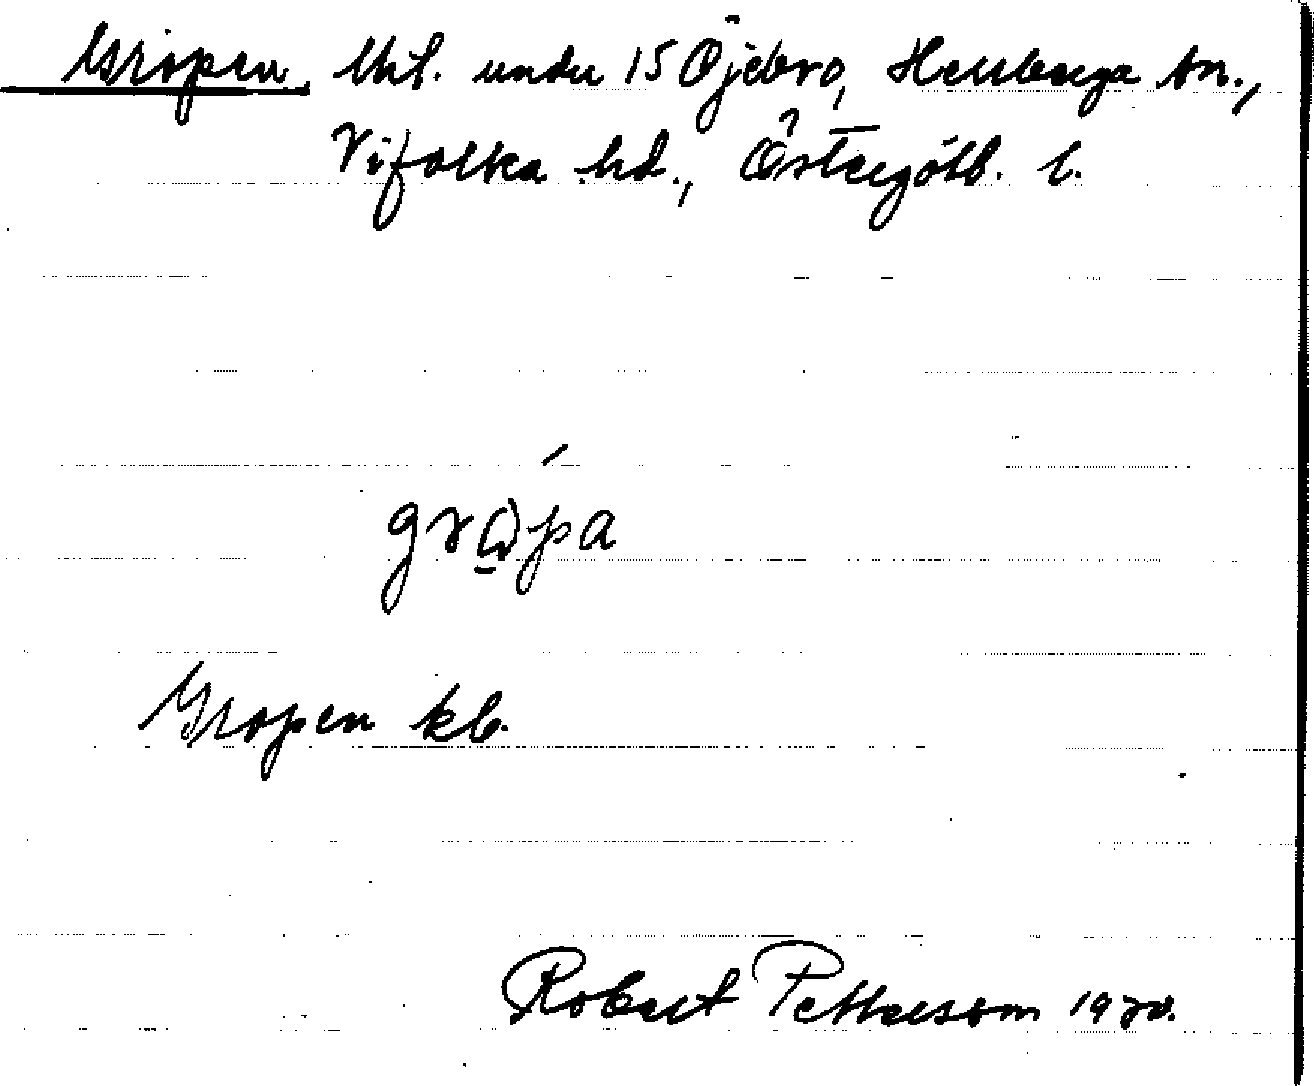 Gropen, lht. under 15 Öjebro, Herrberga sn.,
Vifolka hd., Östergötl. l.
Gropen kb.
Robert Pettersson 1920.